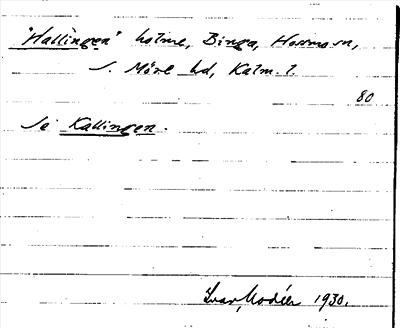 "Hallingen" holme, Binga, Hossmo sn,
S. Möre hd, Kalm. l.
80
Se Kallingen.
Ivar Modéer 1930.